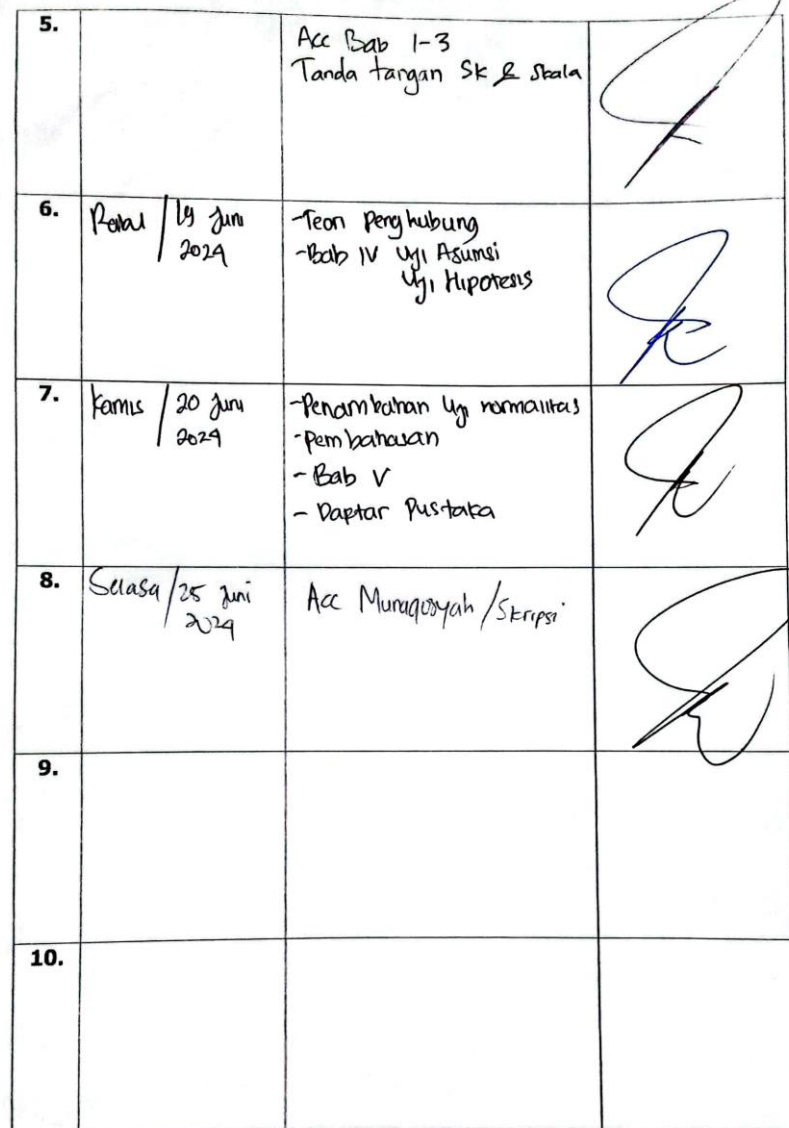 5.
Acc Bab 1-3
Tanda tangan SK & Skala
6.
Rabu / 19 Juni
2024
-Teori Penghubung
-Bab IV Uji Asumsi
Uji Hipotesis
7.
Kamis / 20 Juni
2024
-Penambahan Uji normalitas
-pembahasan
- Bab V
- Daptar Pustaka
8.
Selasa / 25 Juni
2024
Acc Munaqosyah / Skripsi
9.
10.